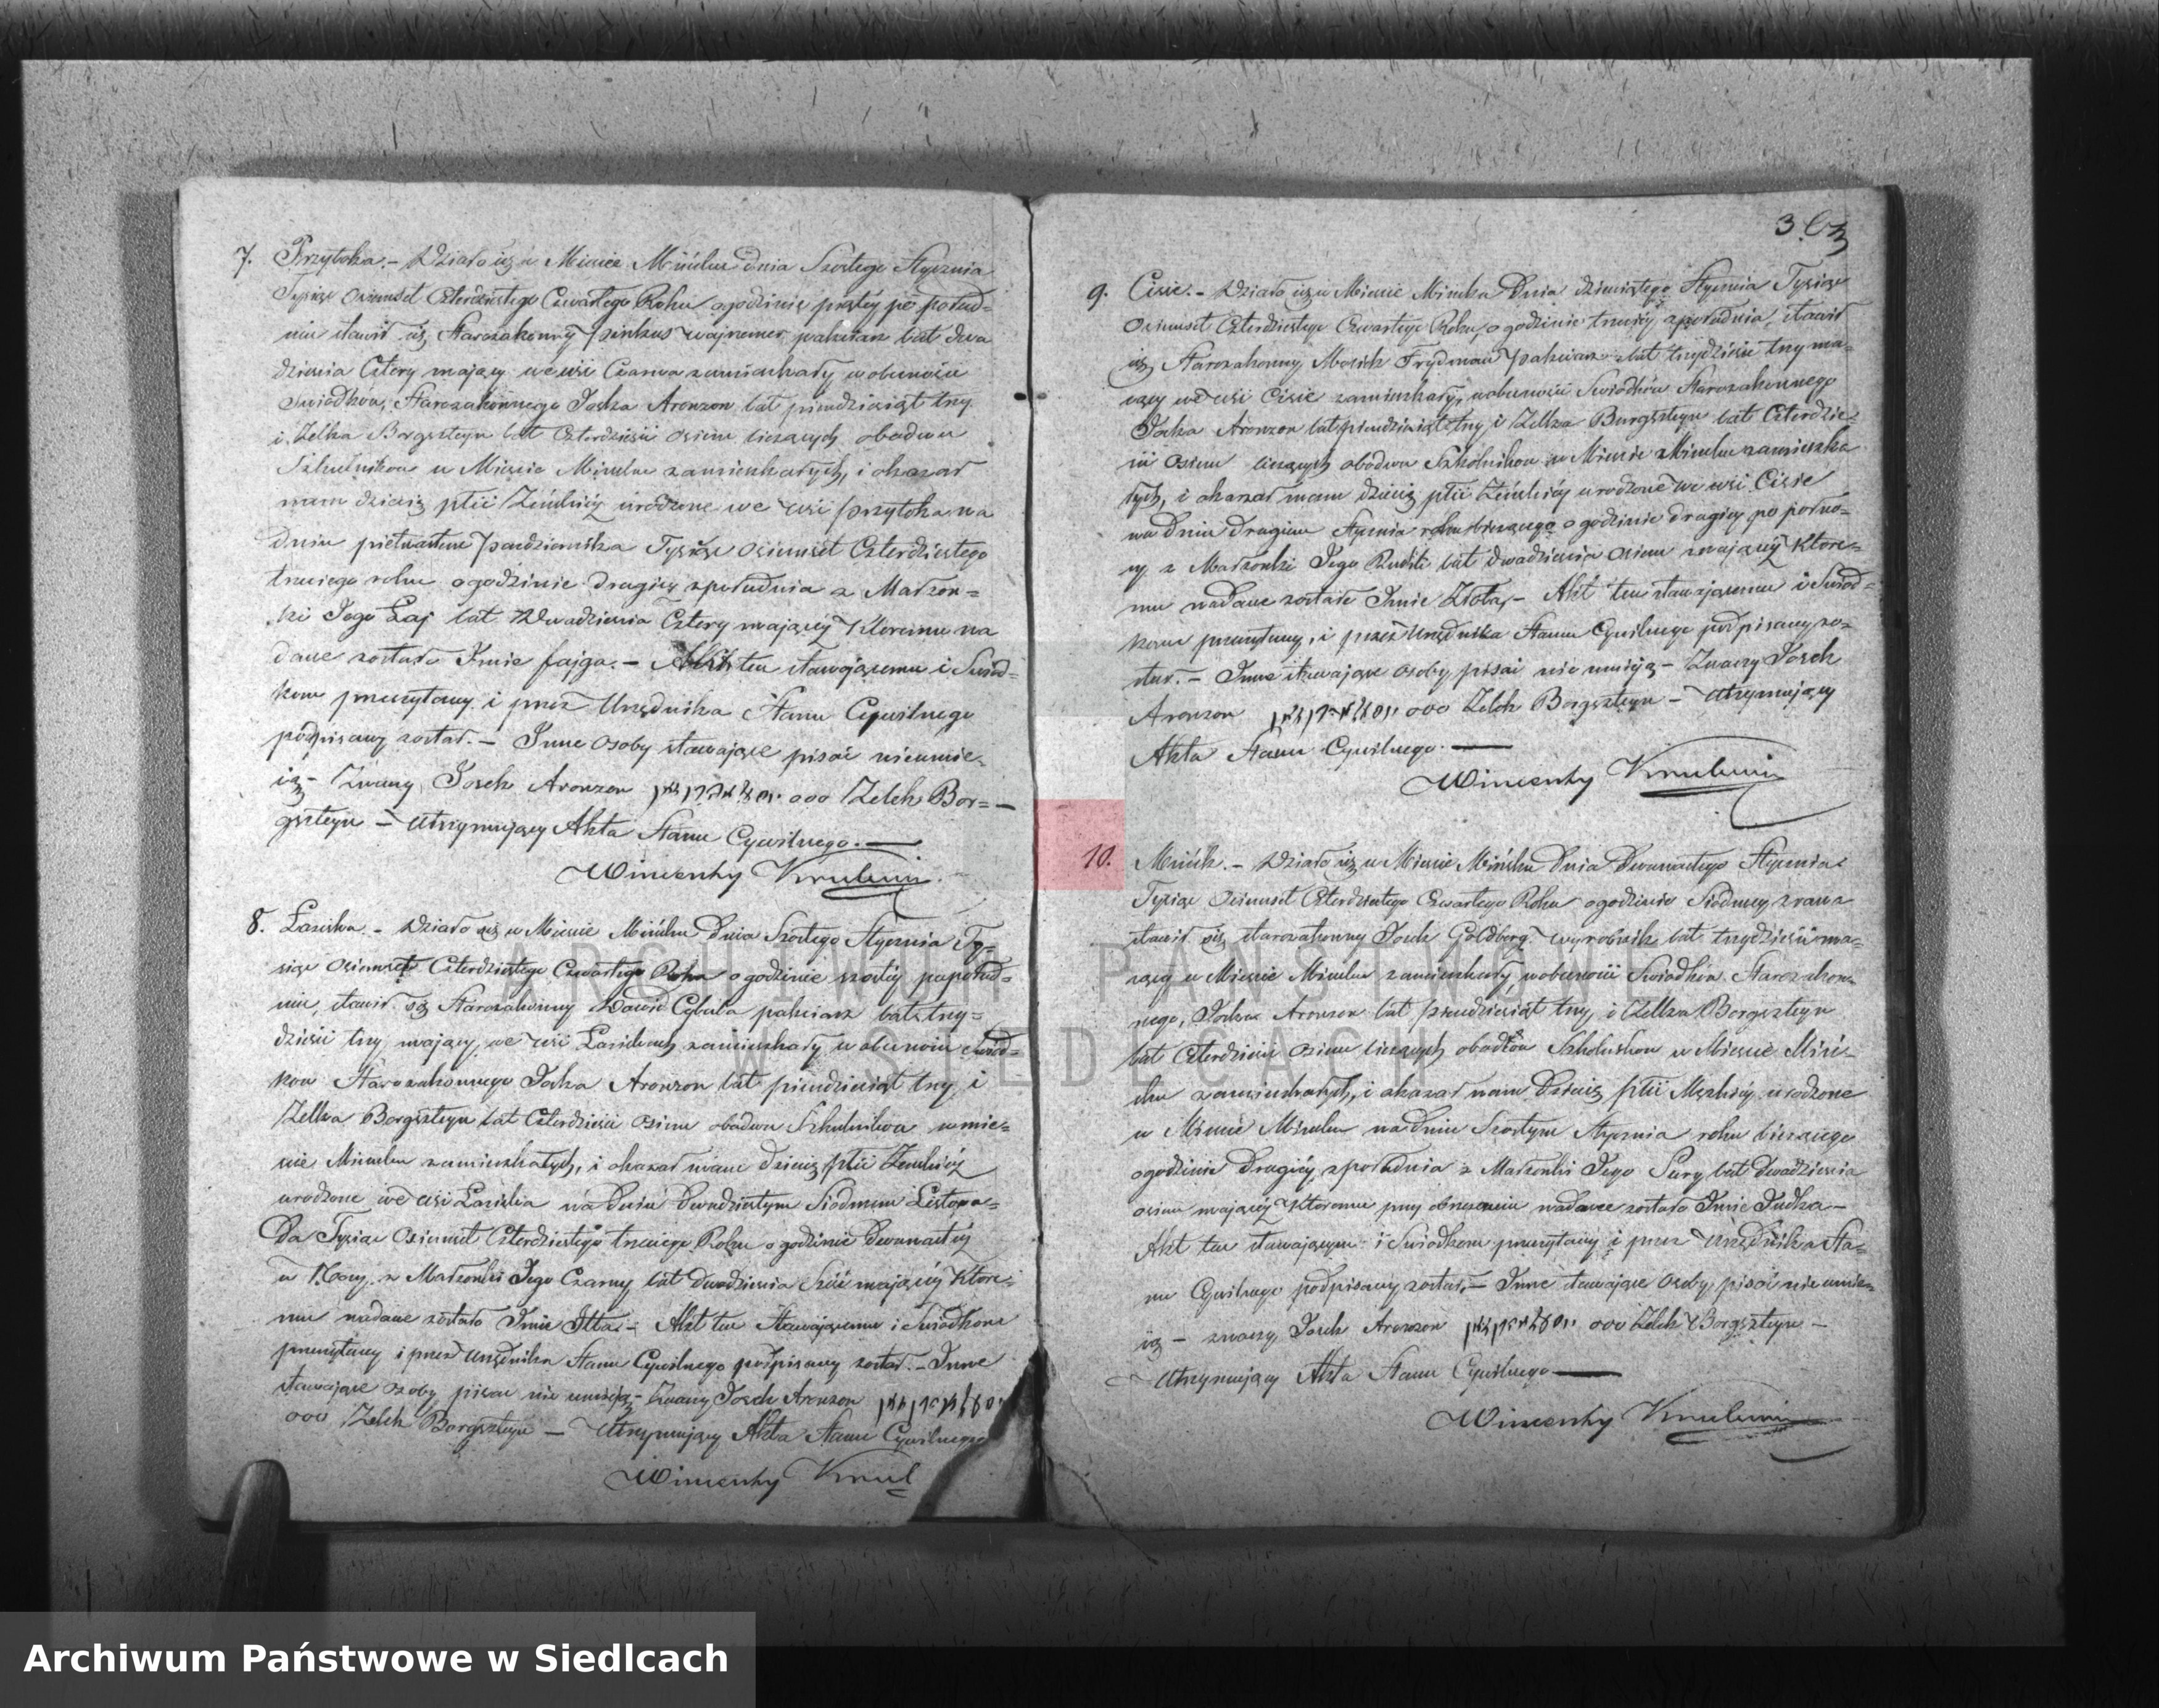 7. Przytoka. – Działo się w Mieście Mińsku dnia Szostego Stycznia
Tysiąc Osiemset Czterdziestego Czwartego Roku o godzinie piątey po połud=
niu stawił się Starozakonny Pinkus Wajnemer pakciarz lat dwa
dzieścia Cztery maiący we wsi Czarna zamieszkały w obecności
Swiadków, Starozakonnego Joska Aronzon lat piendziesiąt trzy
i Zelka Borgszteyn lat Czterdzieści osiem liczących obadwa
Szkolników w Mieście Mińsku zamieszkałych, i okazał
nam dziecię płci Żeńskiéy urodzone we wsi Przytoka na
dniu piętnastem Pazdziernika Tysiąc Osiemset Czterdziestego
trzeciego roku o godzinie drugiey z południa z Małżon=
ki Jego Łaj lat Dwadzieścia Cztery maiącéy Któremu na
dane zostało Imie fajga. – Akt ten stawaiącemu i Swiad=
kom przeczytany i przez Urzędnika Stanu Cywilnego
podpisany został. – Inne Osoby stawaiące pisać nieumie=
ią – Zwany Josek Aronzon 000 Zelek Bor=
gszteyn – Utrzymuiący Akta Stanu Cywilnego. —
Wincenty
8. Łaziska. – Działo się w Mieście Mińsku Dnia Szostego Stycznia Ty=
siąc Osiemset Czterdziestego Czwartego Roku o godzinie szostéy popołud=
niu, stawił się Starozakonny Dawid Cybula pakciarz lat trzy=
dzieści trzy maiący, we wsi Łaziskach zamieszkały w obecności Swiad=
kow Starozakonnego Joska Aronzon lat piendziesiąt trzy i
Zelka Borgszteyn lat Czterdzieści osiem obadwa Szkolników w mie=
ście Mińsku zamieszkałych, i okazał nam dziecię płci Żeńskiéy
urodzone we wsi Łaziska na Dniu Dwudziestym Siodmem Listopa=
Da Tysiąc Osiemset Czterdziestego trzeciego Roku o godzinie Dwunastéy
w Nocy z Małżonki Jego Czarny lat Dwadzieścia Sześć maiącéy Które=
mu nadane zostało Imie Itta. – Akt ten Stawaiącemu i Swiadkom
przeczytany i przez Urzędnika Stanu Cywilnego podpisany został. – Inne
stawaiące osoby pisać nie umieią – Zwany Josek Aronzon
000 Zelek Borgszteyn — Utrzymuiący Akta Stanu Cywilnego
Wincenty
3.
9. Cisie. – Działo się w Mieście Mińsku Dnia dziewiątego Stycznia Tysiąc
Osiemset Czterdziestego Czwartego Roku, o godzinie trzeciéy z południa, stawił
się Starozakonny Moszek Frydman pakciarz lat trzydzieści trzy ma=
iący we wsi Cisie zamieszkały, w obecności Swiadków Starozakonnego
Joska Aronzon lat piendziesiąt trzy i Zelka Borgszteyn lat Czterdzie=
ści osiem liczących obadwa Szkolników w Mieście Mińsku zamieszka
łych, i okazał nam dziecię płci Żeńskiéy urodzone we wsi Cisie
na Dniu Drugim Stycznia roku bieżącego o godzinie drugiéy po połno=
cy z Małżonki Jego Rudli lat Dwadzieścia osiem maiącéy Które=
mu nadane zostało Imie Złota, – Akt ten stawaiącemu i Swiad=
kom przeczytany, i przez Urzędnika Stanu Cywilnego podpisany zo=
stał. – Inne stawaiące osoby pisać nie umieią – Zwany Josek
Aronzon 000 Zelek Borgszteyn – Utrzymuiący
Akta Stanu Cywilnego. —
Wincenty
10. Mińsk. – Działo się w Mieście Mińsku Dnia Dwunastego Stycznia
Tysiąc Osiemset Czterdziestego Czwartego Roku o godzinie Siodmey z rana
stawił się starozakonny Josek Goldberg wyrobnik lat trzydzieści ma=
iący w Mieście Mińsku zamieszkały, w obecności Swiadków Starozakon=
nego, Joska Aronzon lat piendziesiąt trzy, i Zelka Borgszteyn
lat Czterdzieści osiem liczących obadwa Szkolników w Mieście Miń=
sku zamieszkałych, i okazał nam Dziecię płci Męzkiéy urodzone
w Mieście Mińsku na Dniu Szostym Stycznia roku bieżącego
o godzinie Drugiéy z południa z Małżonki Jego Sury lat Dwadzieścia
osiem maiącéy Któremu przy obrzezaniu nadane zostało Imie Judka –
Akt ten stawaiącym i Swiadkom przeczytany i przez Urzędnika Sta=
nu Cywilnego podpisany został, – Inne stawaiące osoby pisać nie umie=
ią – zwany Josek Aronzon 000 Zelek Borgszteyn –
Utrzymuiący Akta Stanu Cywilnego —
Wincenty
ARCHIWUM PAŃSTWOWE
W SIEDLCACH
Archiwum Państwowe w Siedlcach